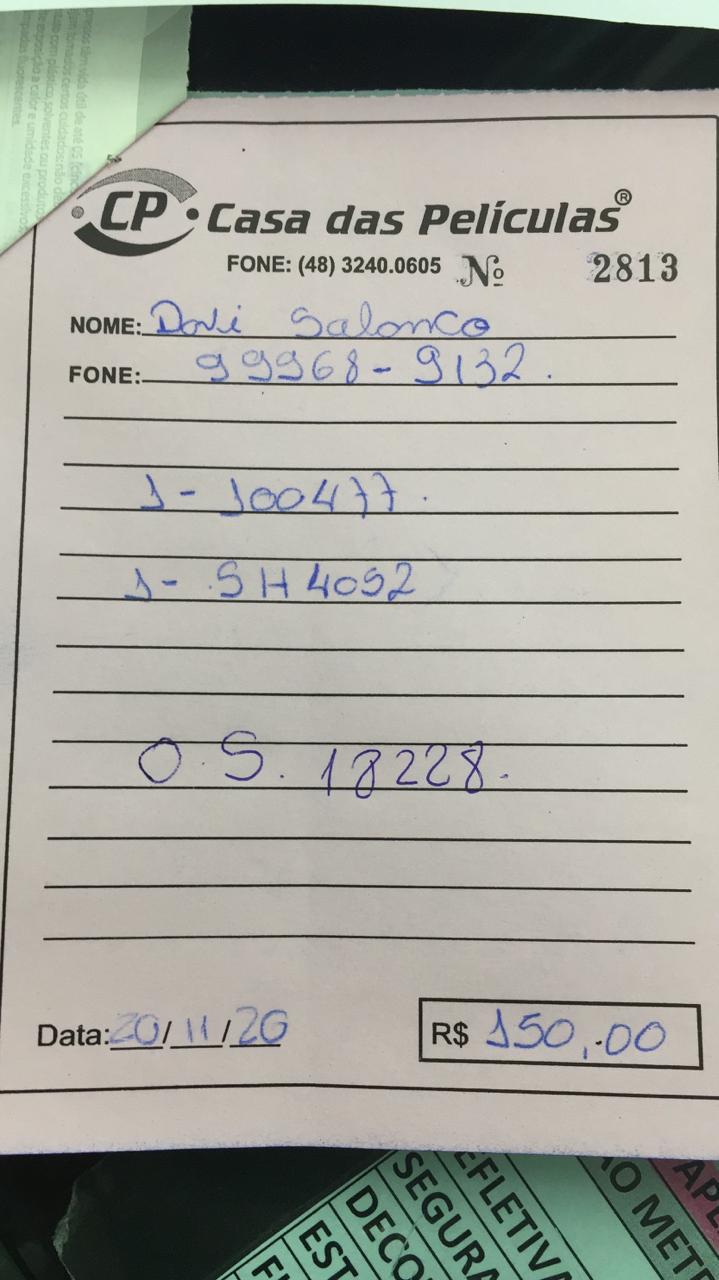 CP Casa das Películas®
FONE: (48) 3240.0605 Nº 2813
NOME: Davi Salonco
FONE: 99968-9132.
1 - 100477.
1 - SH4052
O.S. 18228.
Data: 20/11/20 R$ 150,00
EFLETIVA
SEGURA
DECO
EST
ÃO METR
APL